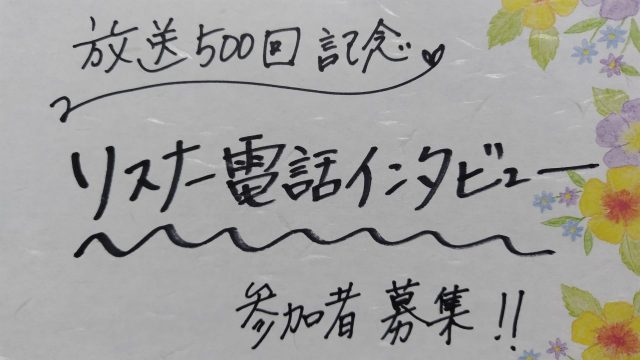 放送500回記念
リスナー電話インタビュー
参加者募集!!